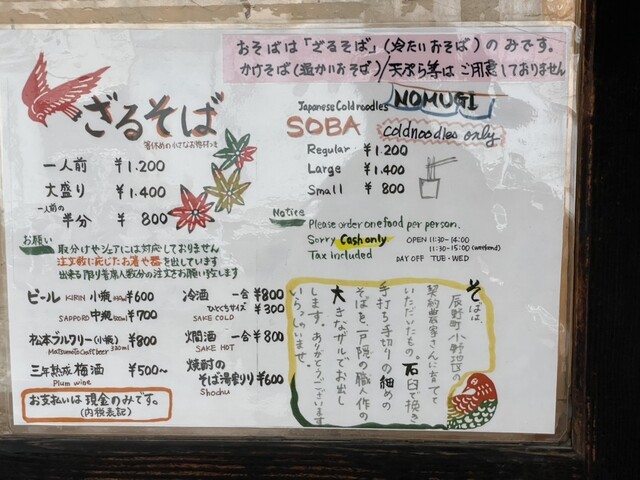 おそばは「ざるそば」(冷たいおそば)のみです。
かけそば(温かいおそば)/天ぷら等はご用意しておりません
ざるそば
一人前 ¥1.200
大盛り ¥1.400
一人前の
半分 ¥ 800
Japanese Cold noodles NOMUGI
SOBA cold noodles only
Regular ¥1.200
Large ¥1.400
Small ¥ 800
Notice
Please order one food per person.
Sorry Cash only OPEN 11:30-14:00
11:30-15:00 (weekend)
Tax included DAY OFF TUE・WED
お願い 取分けやシェアには対応しておりません
注文数に応じたお箸や器を出しています
出来る限り着席人数分の注文をお願い致します
ビール KIRIN 小瓶 ¥600
SAPPORO 中瓶 ¥700
松本ブルワリー(小瓶) ¥800
Matsumoto Craft beer 330ml
三年熟成梅酒 ¥500〜
Plum wine
お支払いは現金のみです。
(内税表記)
冷酒 一合 ¥800
ひとくちサイズ ¥300
SAKE COLD
燗酒 一合 ¥800
SAKE HOT
焼酎の
そば湯割り ¥600
Shochu
そばは、
辰野町小野地区の
契約農家さんに育てて
いただいたもの。石臼で挽き
手打ち手切りの細めの
そばを、戸隠の職人作の
大きなザルでお出し
します。ありがとうございます
いらっしゃいませ。